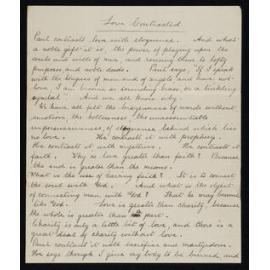 Love Contrasted
Paul contrasts love with eloquence. And what
a noble gift it is, the power of playing upon the
souls and wills of men, and rousing them to lofty
purposes and noble deeds. Paul says, "If I speak
with the tongues of men and of angels, and have not
love, I am become as sounding brass, or a tinkling
cymbal". And we all know why.
We have all felt the brazenness of words without
emotion, the hollowness, the unaccountable
unpersuasiveness, of eloquence behind which lies
no love. He contrasts it with prophecy.
He contrasts it with mysteries. He contrasts it
faith. Why is love greater than faith? Because
the end is greater than the means.
What is the use of having faith? It is to connect
the soul with God. And what is the object
of connecting man with God? That he may become
like God. Love is greater than charity, because
the whole is greater than a part.
Charity is only a little bit of love, and there is a
great deal of charity without love.
Paul contrasts it with sacrifice and martyrdom.
He says though I give my body to be burned, and